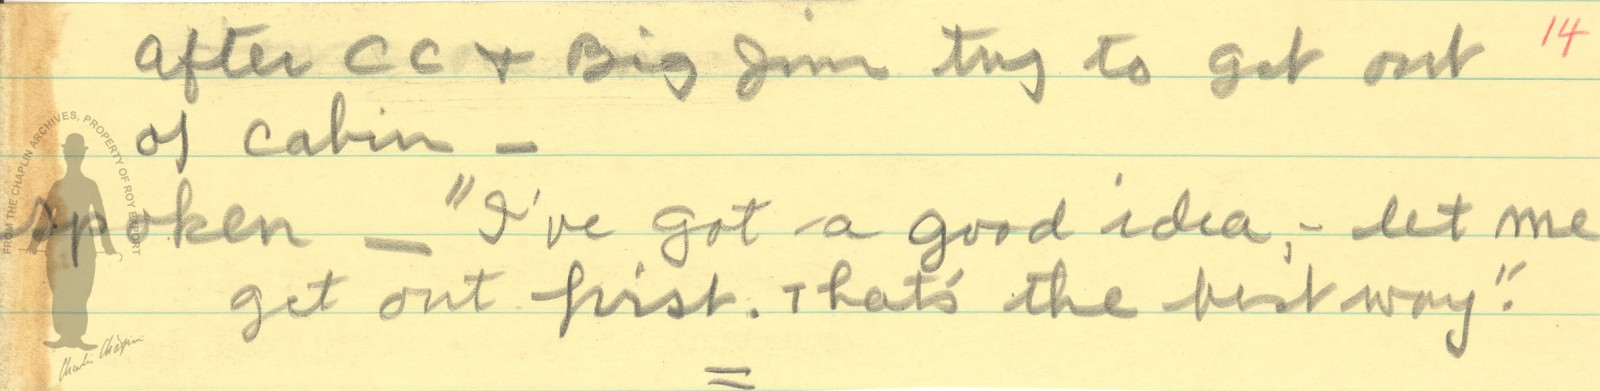 14
after CC + Big Jim try to get out
of cabin –
spoken – "I've got a good idea, - let me
get out first. That's the best way".
=
FROM THE CHAPLIN ARCHIVES, PROPERTY OF ROY EXPORT
Charlie Chaplin